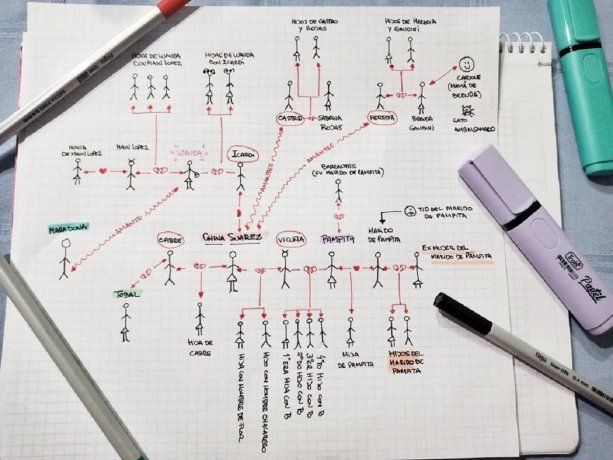 HIJOS DE WANDA
CON MAXI LOPEZ
HIJAS DE WANDA
CON ICARDI
HIJOS DE CASTRO
Y ROJAS
HIJOS DE HEREDIA
Y GANDINI
CARDONE
(MAMÁ DE
BRENDA)
GATO
EMBALSAMADO
NOVIA
DE MAXI LOPEZ
MAXI LOPEZ
WANDA
ICARDI
CASTRO
SABRINA
ROJAS
HEREDIA
BRENDA
GANDINI
AMANTES
AMANTES
BARRANTES
(EX MARIDO DE PAMPITA)
MARADONA
AMANTE
TIO DEL MARIDO
DE PAMPITA
CABRE
CHINA SUAREZ
VICUÑA
PAMPITA
MARIDO
DE PAMPITA
EX MUJER DEL
MARIDO DE PAMPITA
TOBAL
HIJA DE
CABRE
HIJA CON NOMBRE DE FLOR
HIJO CON NOMBRE CHACARERO
1ERA HIJA CON B
2DO HIJO CON B
3ER HIJO CON B
4TO HIJO CON B
HIJA
DE PAMPITA
HIJOS DEL
MARIDO DE
PAMPITA
Pastel